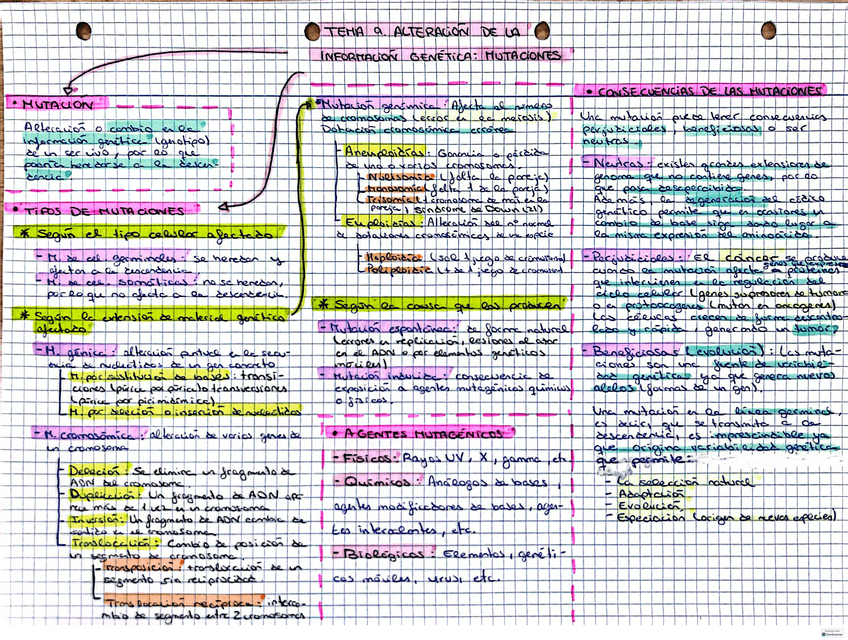 TEMA 9. ALTERACIÓN DE LA
INFORMACIÓN GENÉTICA: MUTACIONES
• MUTACIÓN
Alteración o cambio en la
información genética (genotipo)
de un ser vivo, por lo que
podría heredarse a la descen-
dencia.
• TIPOS DE MUTACIONES
* Según el tipo celular afectado
- M. de cel. germinales: se heredan y
afectan a la descendencia.
- M. de cel. somáticas: no se heredan,
por lo que no afecta a la descendencia.
* Según la extensión de material genético
afectado
- M. génica: alteración puntual en la secuen-
cia de nucleótidos de un gen concreto
M. por sustitución de bases: transi-
ciones (púrica por púrica) transversiones
(púrica por pirimidínica).
M. por deleción o inserción de nucleótidos
- M. cromosómica: alteración de varios genes de
un cromosoma
- Deleción: Se elimina un fragmento de
ADN del cromosoma.
- Duplicación: Un fragmento de ADN apa-
rece más de 1 vez en un cromosoma
- Inversión: Un fragmento de ADN cambia de
sentido en el cromosoma.
- Translocación: Cambio de posición de
un segmento de cromosoma.
- Transposición: translocación de un
segmento sin reciprocidad.
- Translocación recíproca: interca-
mbio de segmento entre 2 cromosomas
• Mutación genómica: Afecta al número
de cromosomas (error en la meiosis)
Dotación cromosómica errónea.
- Aneuploidías: Ganancia o pérdida
de uno o varios cromosomas.
- Nulisomía (falta la pareja)
- Monosomía (falta 1 de la pareja)
- Trisomía (1 cromosoma de más en la
pareja) Síndrome de Down (21)
- Euploidías: Alteración del nº normal
de dotaciones cromosómicas de una especie
- Haploidía (solo 1 juego de cromosomas)
- Poliploidía (+ de 1 juego de cromosomas)
* Según la causa que las producen
- Mutación espontánea: de forma natural
(errores en replicación, lesiones al azar
en el ADN o por elementos genéticos
móviles)
- Mutación inducida: consecuencia de
exposición a agentes mutagénicos químicos
o físicos.
• AGENTES MUTAGÉNICOS
- Físicos: Rayos UV, X, gamma, etc.
- Químicos: Análogos de bases,
agentes modificadores de bases, agen-
tes intercalantes, etc.
- Biológicos: Elementos, genéti-
cos móviles, virus, etc.
• CONSECUENCIAS DE LAS MUTACIONES
Una mutación puede tener consecuencias
perjudiciales, beneficiosas o ser
neutras.
- Neutras: existen grandes extensiones de
genoma que no contiene genes, por lo
que pasa desapercibido.
Además la degeneración del código
genético permite que en ocasiones un
cambio de base siga dando lugar a
la misma expresión del aminoácido.
- Perjudiciales: El cáncer se produce
cuando la mutación afecta a proteínas
que intervienen en la regulación del
ciclo celular (genes supresores de tumores
o a protooncogenes (mutan en oncogenes)
Las células crecen de forma descontro-
lada y rápida, generando un tumor.
- Beneficiosas (evolución): Las muta-
ciones son una fuente de variabili-
dad genética ya que genera nuevos
alelos (formas de un gen).
Una mutación en la línea germinal,
es decir, que se transmite a la
descendencia, es imprescindible ya
que origina variabilidad genética
que permite:
- La selección natural
- Adaptación
- Evolución
- Especiación (origen de nuevas especies)